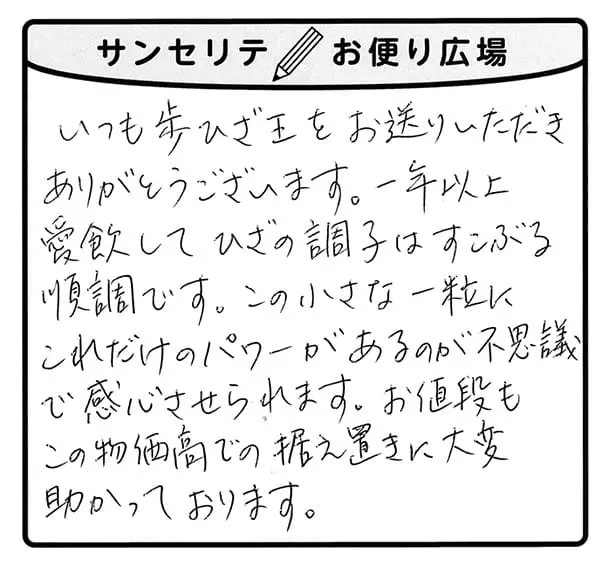 サンセリテ お便り広場
いつも歩ひざ王をお送りいただき
ありがとうございます。一年以上
愛飲してひざの調子はすこぶる
順調です。この小さな一粒に
これだけのパワーがあるのが不思議
で感心させられます。お値段も
この物価高での据え置きに大変
助かっております。